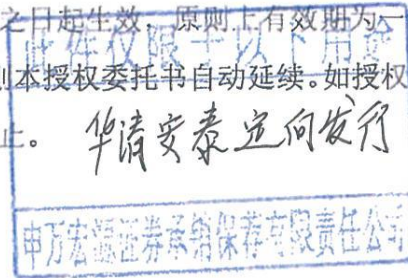 之日起生效，原则上有效期为一
此件仅限于以下用途
则本授权委托书自动延续。如授权
止。
华清安泰定向发行
申万宏源证券承销保荐有限责任公司